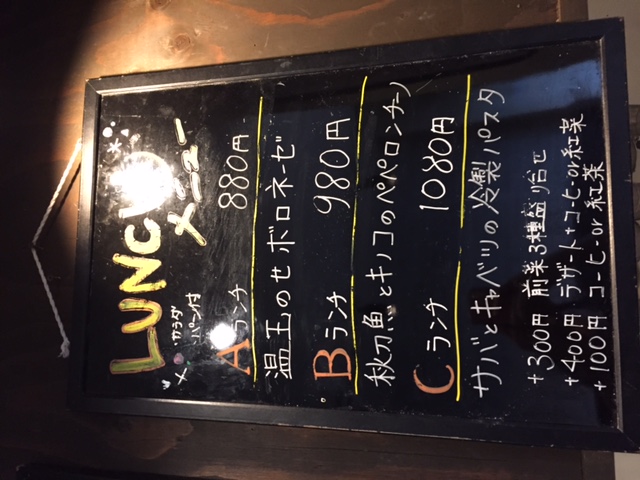 LUNCH
メニュー
サラダ
パン付
Aランチ 880円
温玉のせボロネーゼ
Bランチ 980円
秋刀魚とキノコのペペロンチーノ
Cランチ 1080円
サバとキャベツの冷製パスタ
+300円 前菜3種盛り合せ
+400円 デザート+コーヒーor紅茶
+100円 コーヒーor紅茶